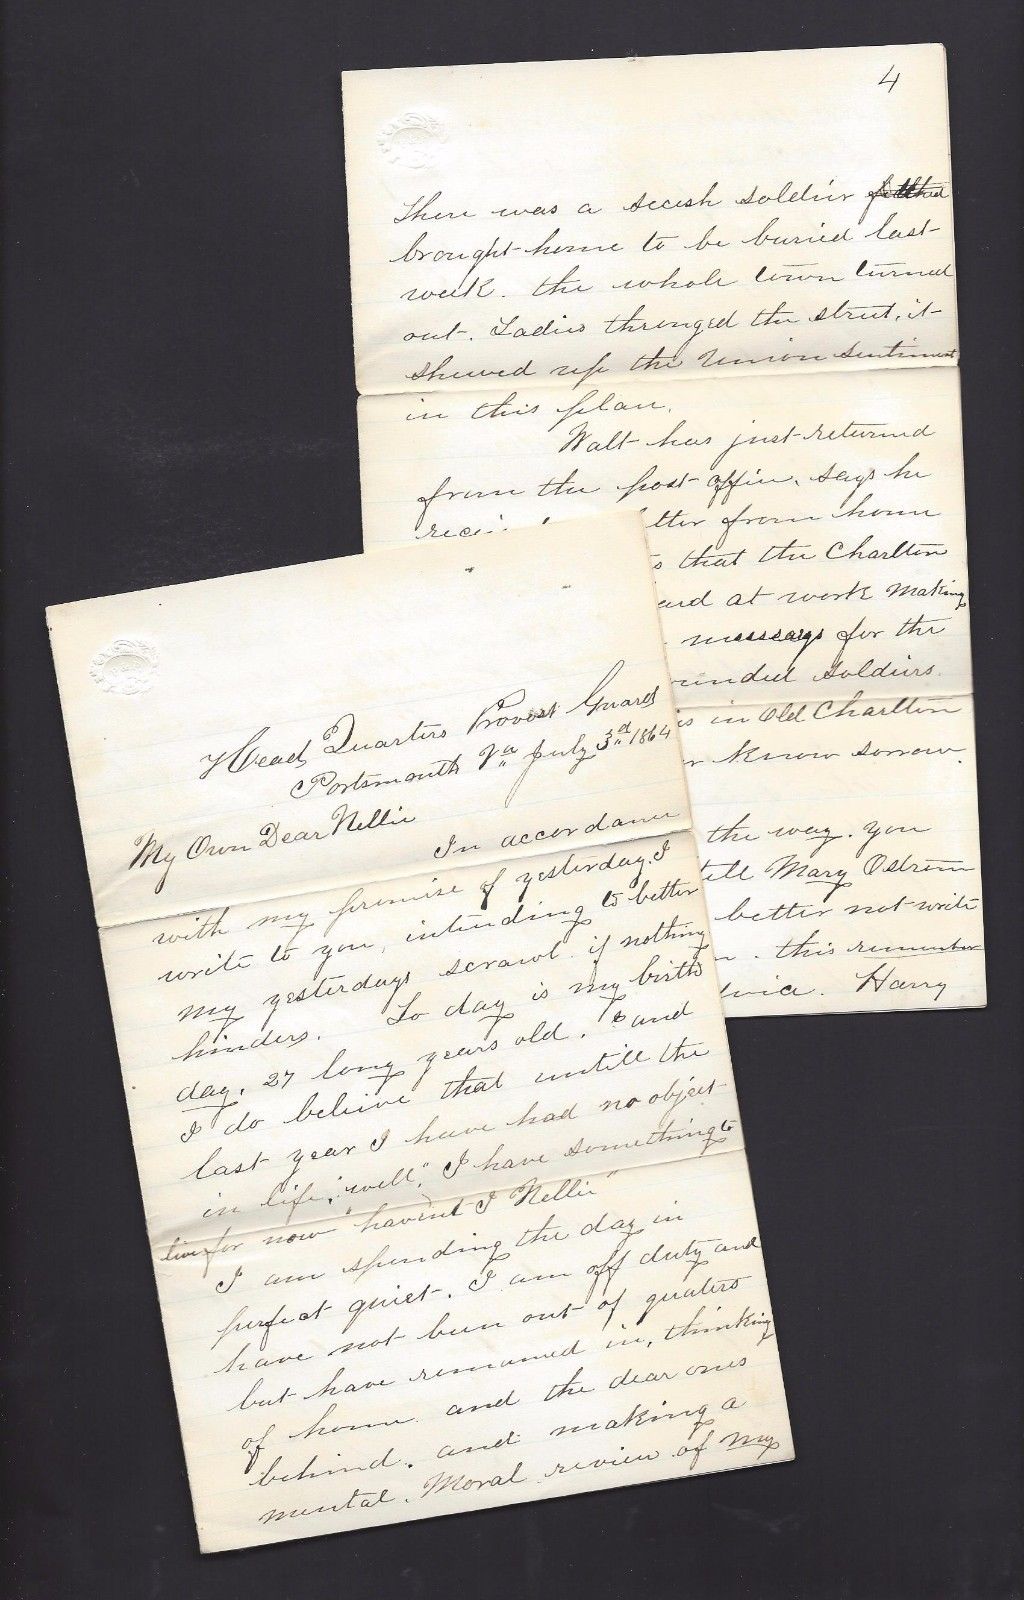 Head Quarters Provost Guard
Portsmouth Va July 3rd 1864
My Own Dear Nellie
In accordance
with my promise of yesterday. I
write to you, intending to better
my yesterdays scrawl if nothing
hinders. To day is my birth
day. 27 long years old. and
I do beleive that untill the
last year I have had no object
in life, "well," I have something to
live for now "havent I Nellie"
I am spending the day in
perfect quiet. I am off duty and
have not been out of quaters
but have remained in, thinking
of home and the dear ones
behind. and making a
mental. Moral review of my
4
There was a secesh soldier
brought home to be buried last
week. the whole town turned
out. Ladies thronged the street, it
shewed up the Union sentiment
in this place.
Walt has just returned
from the post office, says he
letter from home
that the Charlton
at work making
for the
wounded soldiers.
is in Old Charlton
know sorrow.
the way. you
tell Mary Ostrom
better not write
this remember
Harry